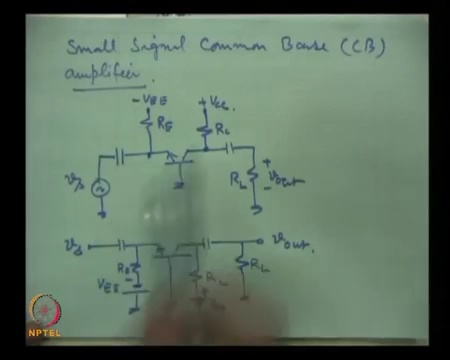 Small Signal Common Base (CB)
amplifier.
-VEE +VCC
RE RL
vs RL + vout -
vs vout.
RE RL RL
VEE - +
NPTEL